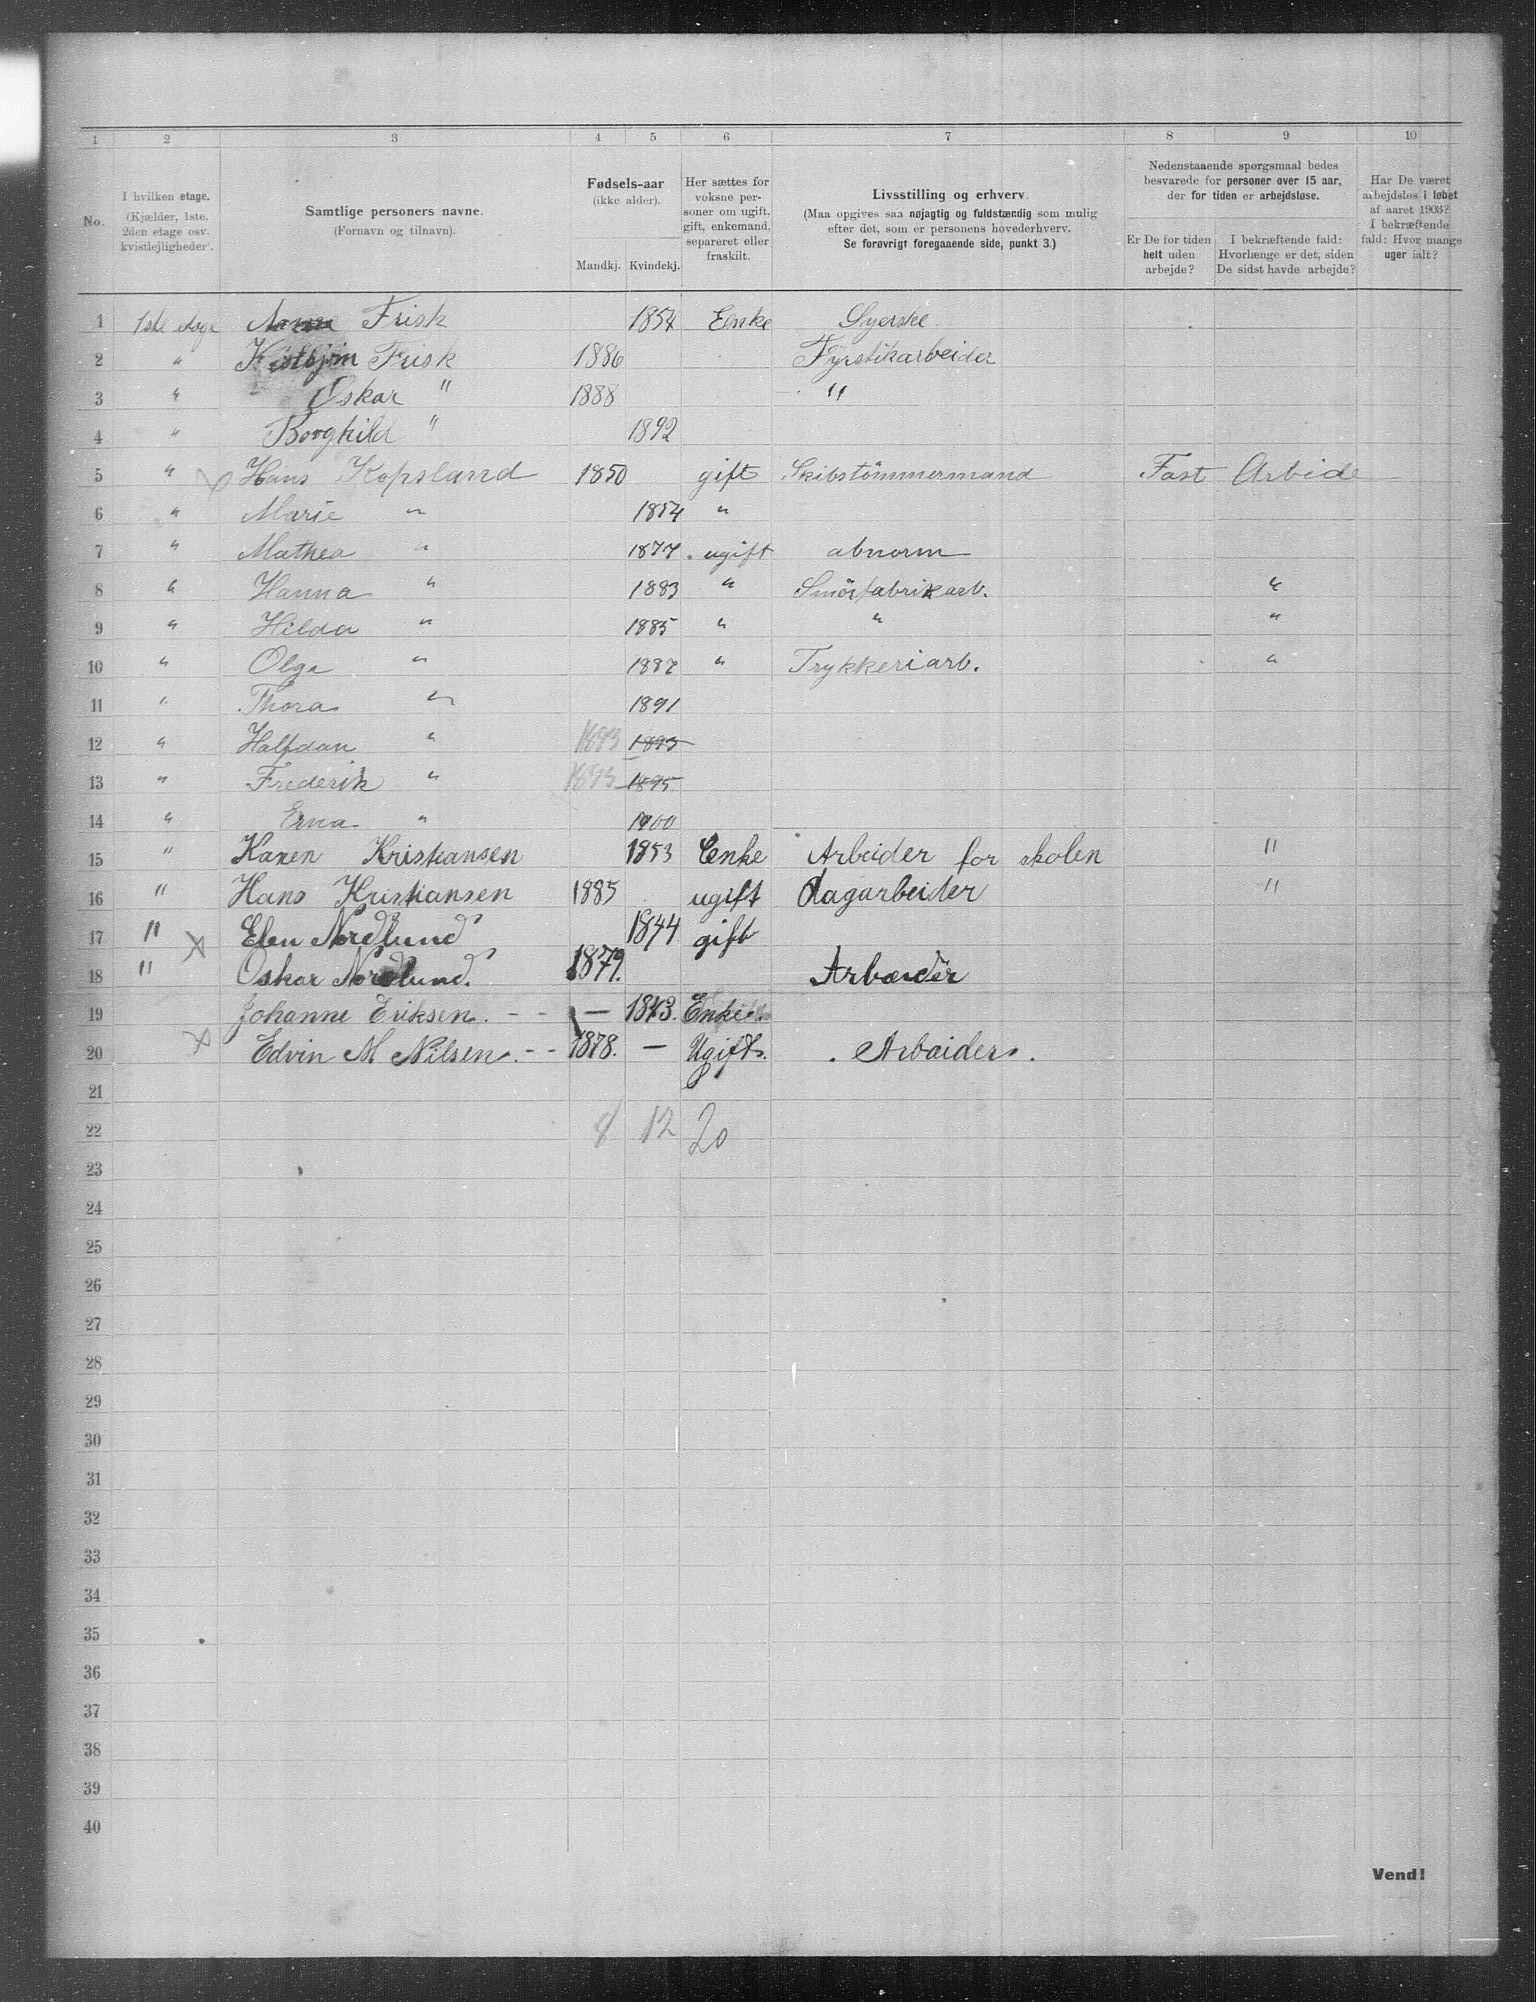 1 2 3 4 5 6 7 8 9 10
No.
I hvilken etage. (Kjælder, 1ste, 2den etage osv. kvistlejligheder).
Samtlige personers navne. (Fornavn og tilnavn).
Fødsels-aar (ikke alder). Mandkj. Kvindekj.
Her sættes for voksne personer om ugift, gift, enkemand, separeret eller fraskilt.
Livsstilling og erhverv. (Maa opgives saa nøjagtig og fuldstændig som mulig efter det, som er personens hovederhverv. Se forøvrigt foregaaende side, punkt 3.)
Nedenstaaende spørgsmaal bedes besvarede for personer over 15 aar, der for tiden er arbejdsløse.
Er De for tiden helt uden arbejde?
I bekræftende fald: Hvorlænge er det, siden De sidst havde arbejde?
Har De været arbejdsløs i løbet af aaret 1903? I bekræftende fald: Hvor mange uger ialt?
1 1ste etage Frisk 1854 Enke Syerske
2 " Frisk 1886 Fyrstikarbeider
3 " Oskar " 1888 "
4 " Borghild " 1892
5 " Hans Kopsland 1850 gift Skibstömmermand Fast Arbide
6 " Marie " 1854 "
7 " Mathea " 1877 ugift abnorm
8 " Hanna " 1883 " Smörfabrikarb. "
9 " Hilda " 1885 " " "
10 " Olga " 1887 " Trykkeriarb. "
11 " Thora " 1891
12 " Halfdan " 1893 1893
13 " Frederik " 1895 1895
14 " Erna " 1900
15 " Karen Kristiansen 1853 Enke Arbeider for skolen "
16 " Hans Kristiansen 1885 ugift dagarbeider "
17 " Elen Nordlund 1844 gift
18 " Oskar Nordlund. 1879. Arbeider
19 Johanne Eriksen. - - — 1843. Enke.
20 Edvin M Nilsen. - - 1878. — Ugift. Arbeider.
21
22 8 12 20
23
24
25
26
27
28
29
30
31
32
33
34
35
36
37
38
39
40
Vend!